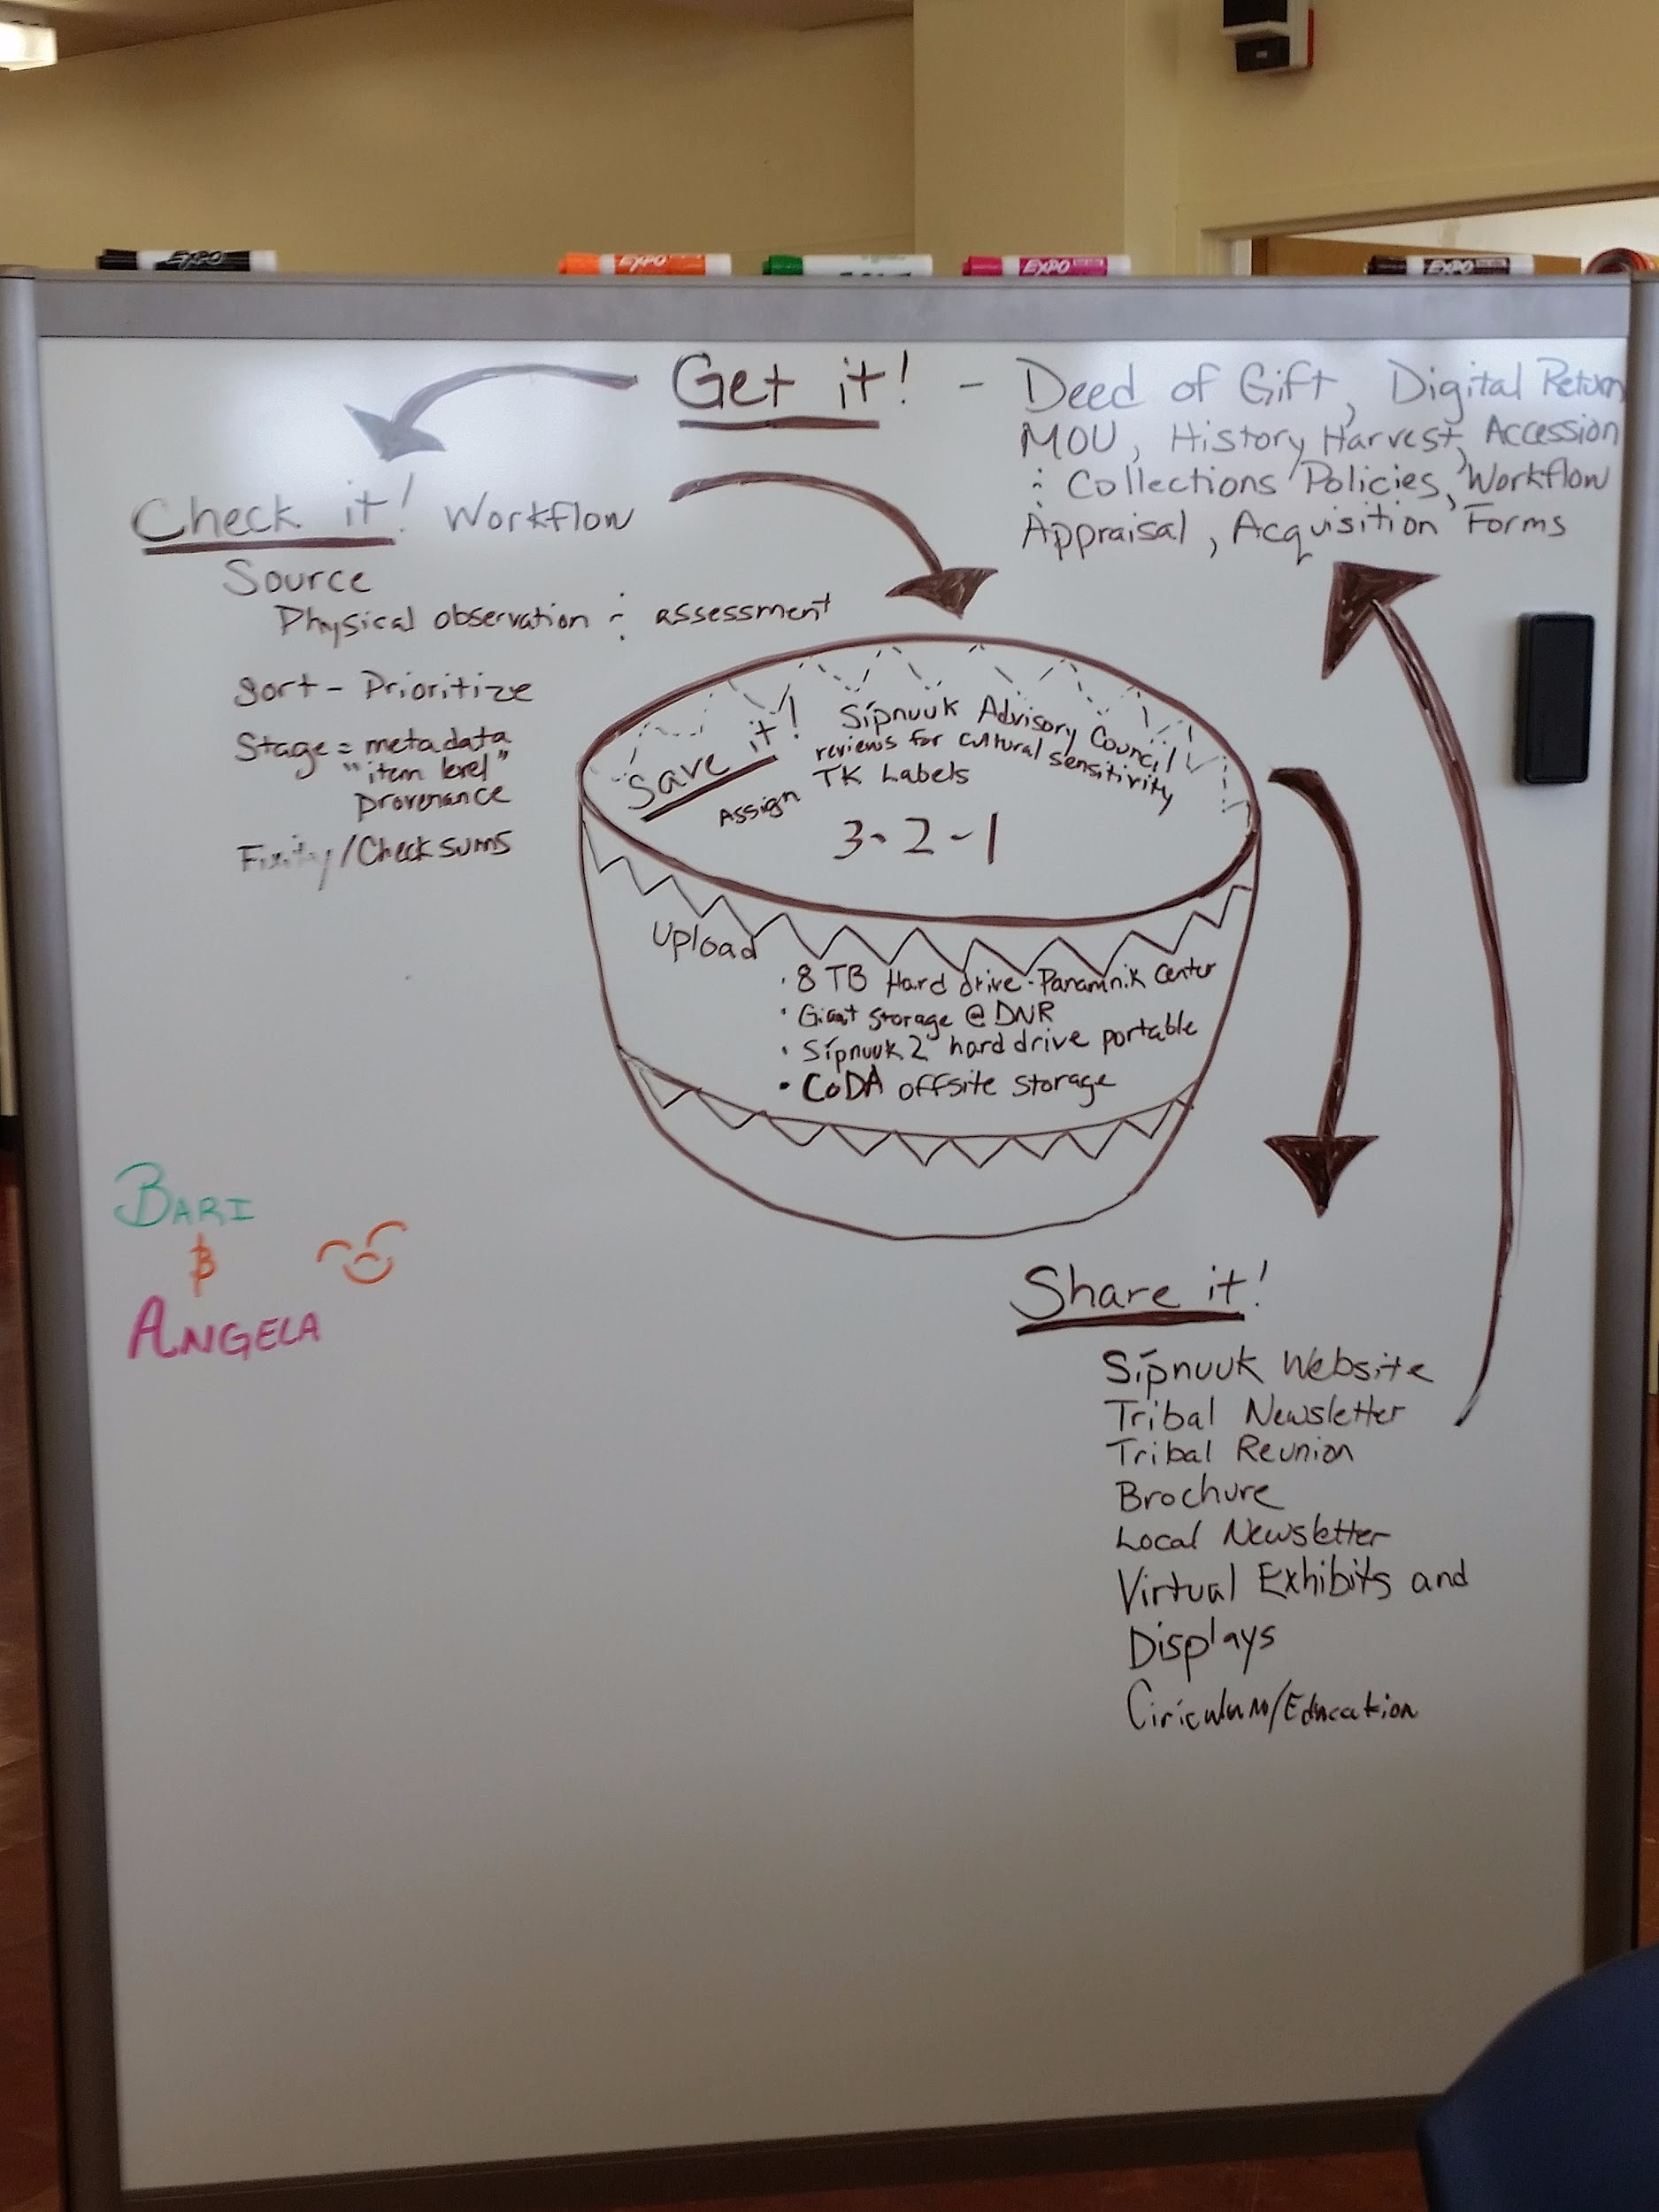 EXPO
EXPO
EXPO
EXPO
Get it! - Deed of Gift, Digital Return
MOU, History Harvest, Accession
: Collections Policies, Workflow
Appraisal, Acquisition Forms
Check it! Workflow
Source
Physical observation : assessment
Sort - Prioritize
Stage = metadata
"item level"
provenance
Fixity/Checksums
Save it!
Sípnuuk Advisory Council
reviews for cultural sensitivity
Assign TK Labels
3-2-1
Upload
• 8 TB Hard drive - Panamnik Center
• Giant Storage @ DNR
• Sípnuuk 2 hard drive portable
• CoDA offsite storage
BARI
&
ANGELA
Share it!
Sípnuuk Website
Tribal Newsletter
Tribal Reunion
Brochure
Local Newsletter
Virtual Exhibits and
Displays
Ciriculum/Education